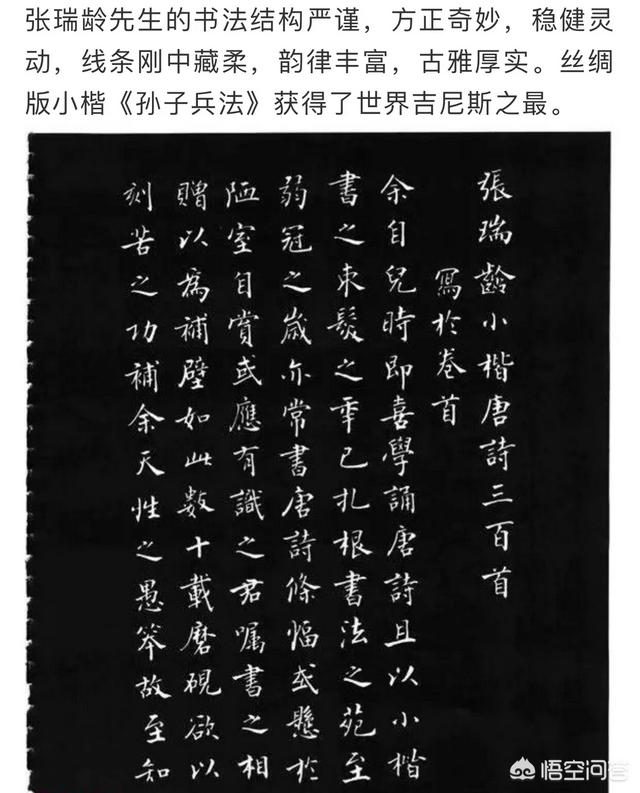 张瑞龄先生的书法结构严谨，方正奇妙，稳健灵
动，线条刚中藏柔，韵律丰富，古雅厚实。丝绸
版小楷《孙子兵法》获得了世界吉尼斯之最。
張瑞齡小楷唐詩三百首
寫於卷首
余自兒時即喜學誦唐詩且以小楷
書之束髮之年已扎根書法之苑至
弱冠之歲亦常書唐詩條幅或懸於
陋室自賞或應有識之君嘱書之相
贈以為補壁如此數十載磨硯欲以
刻苦之功補余天性之愚笨故至知
悟空问答